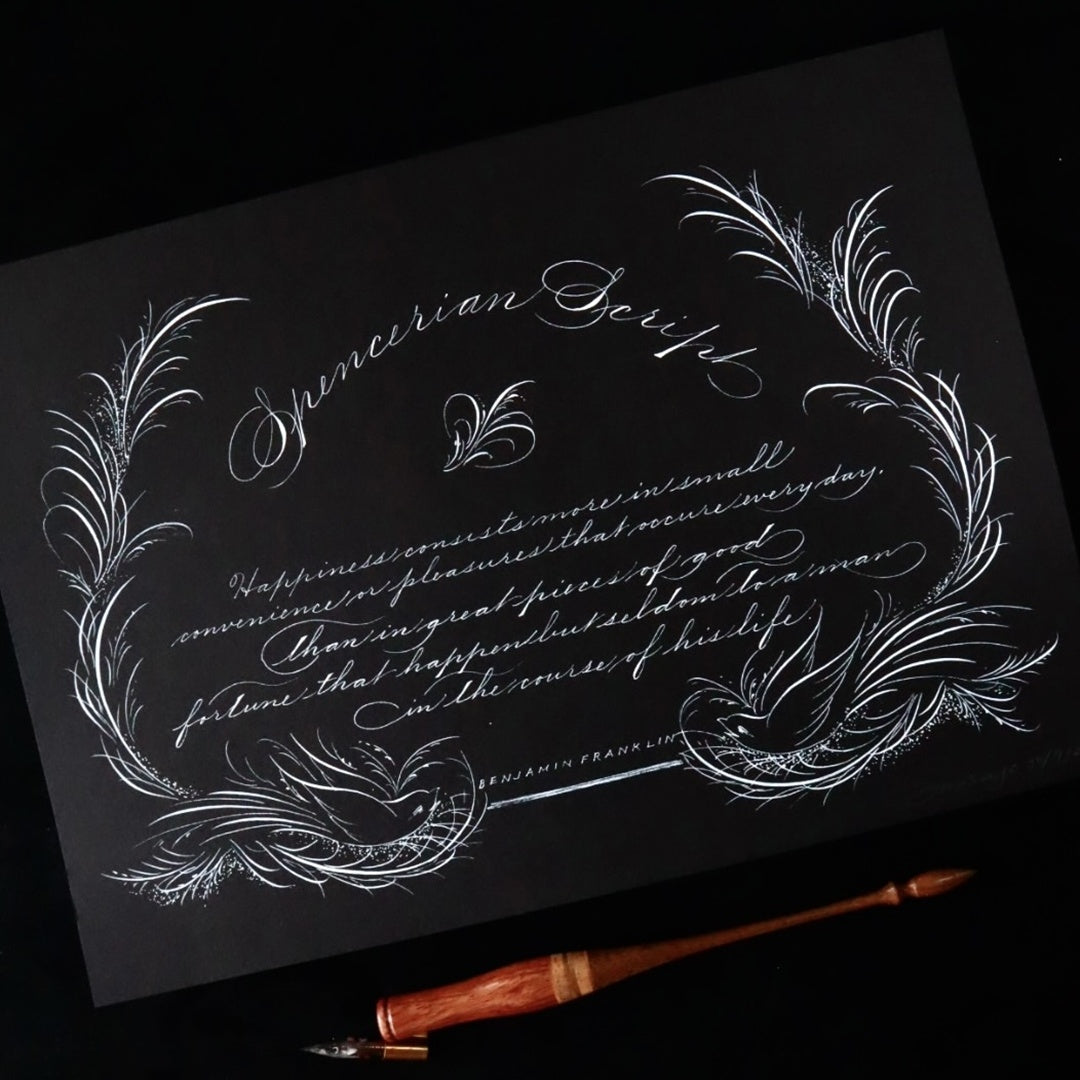 Spencerian Script
Happiness consists more in small
convenience or pleasures that occure every day.
Than in great pieces of good
fortune that happen but seldom to a man
in the course of his life.
BENJAMIN FRANKLIN